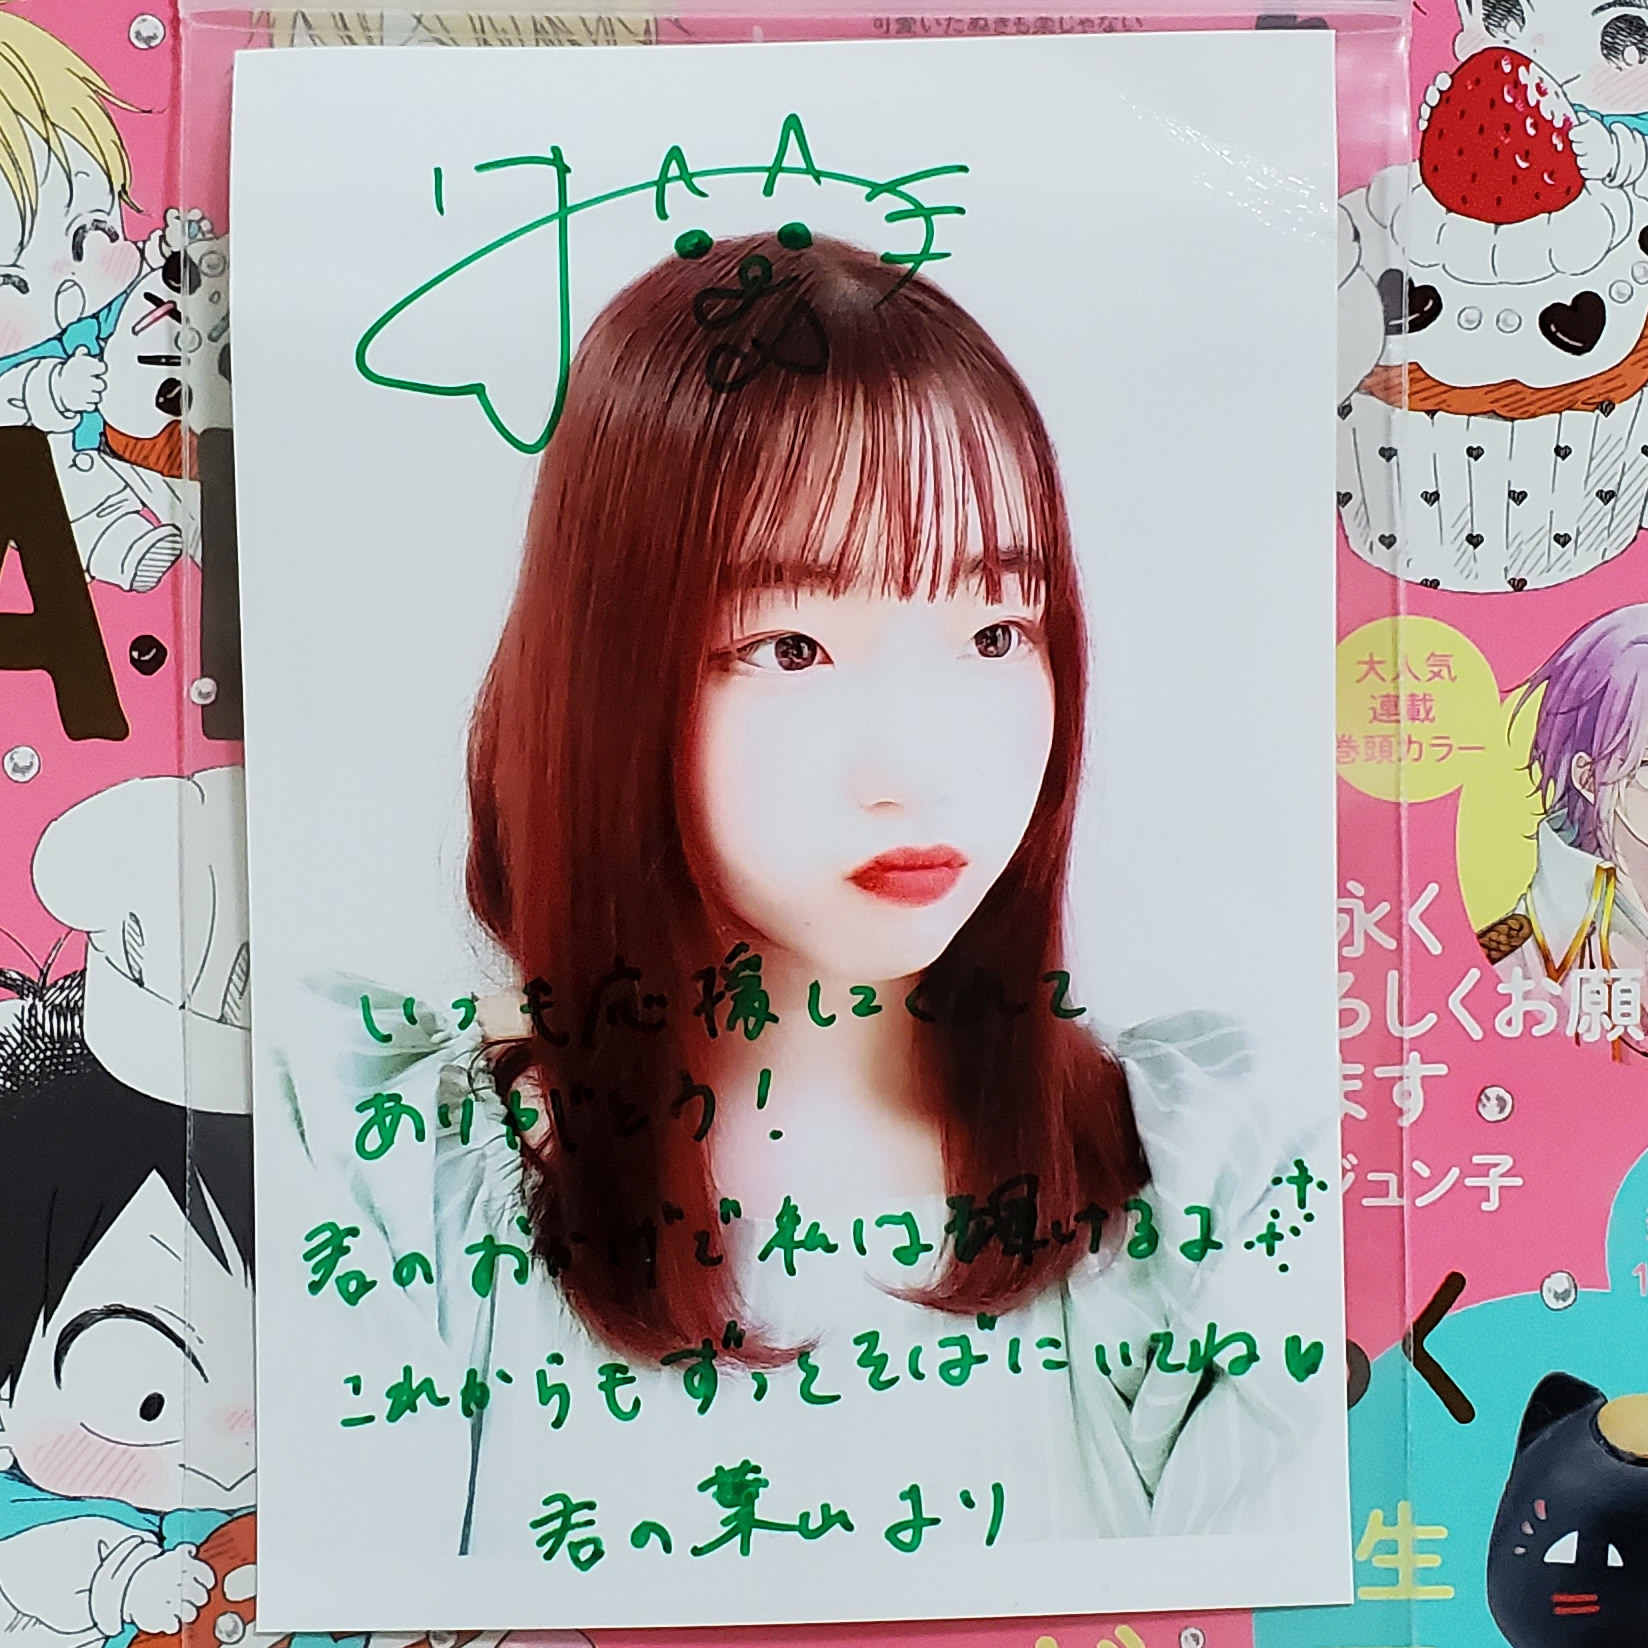 可愛いたぬきも楽じゃない
大人気
連載
巻頭カラー
永く
ろしくお願
ます
ジュン子
いつも応援してくれて
ありがとう!
君のおかげで私は輝けるよ
これからもずっとそばにいてね♥
君の葉山より
く
生